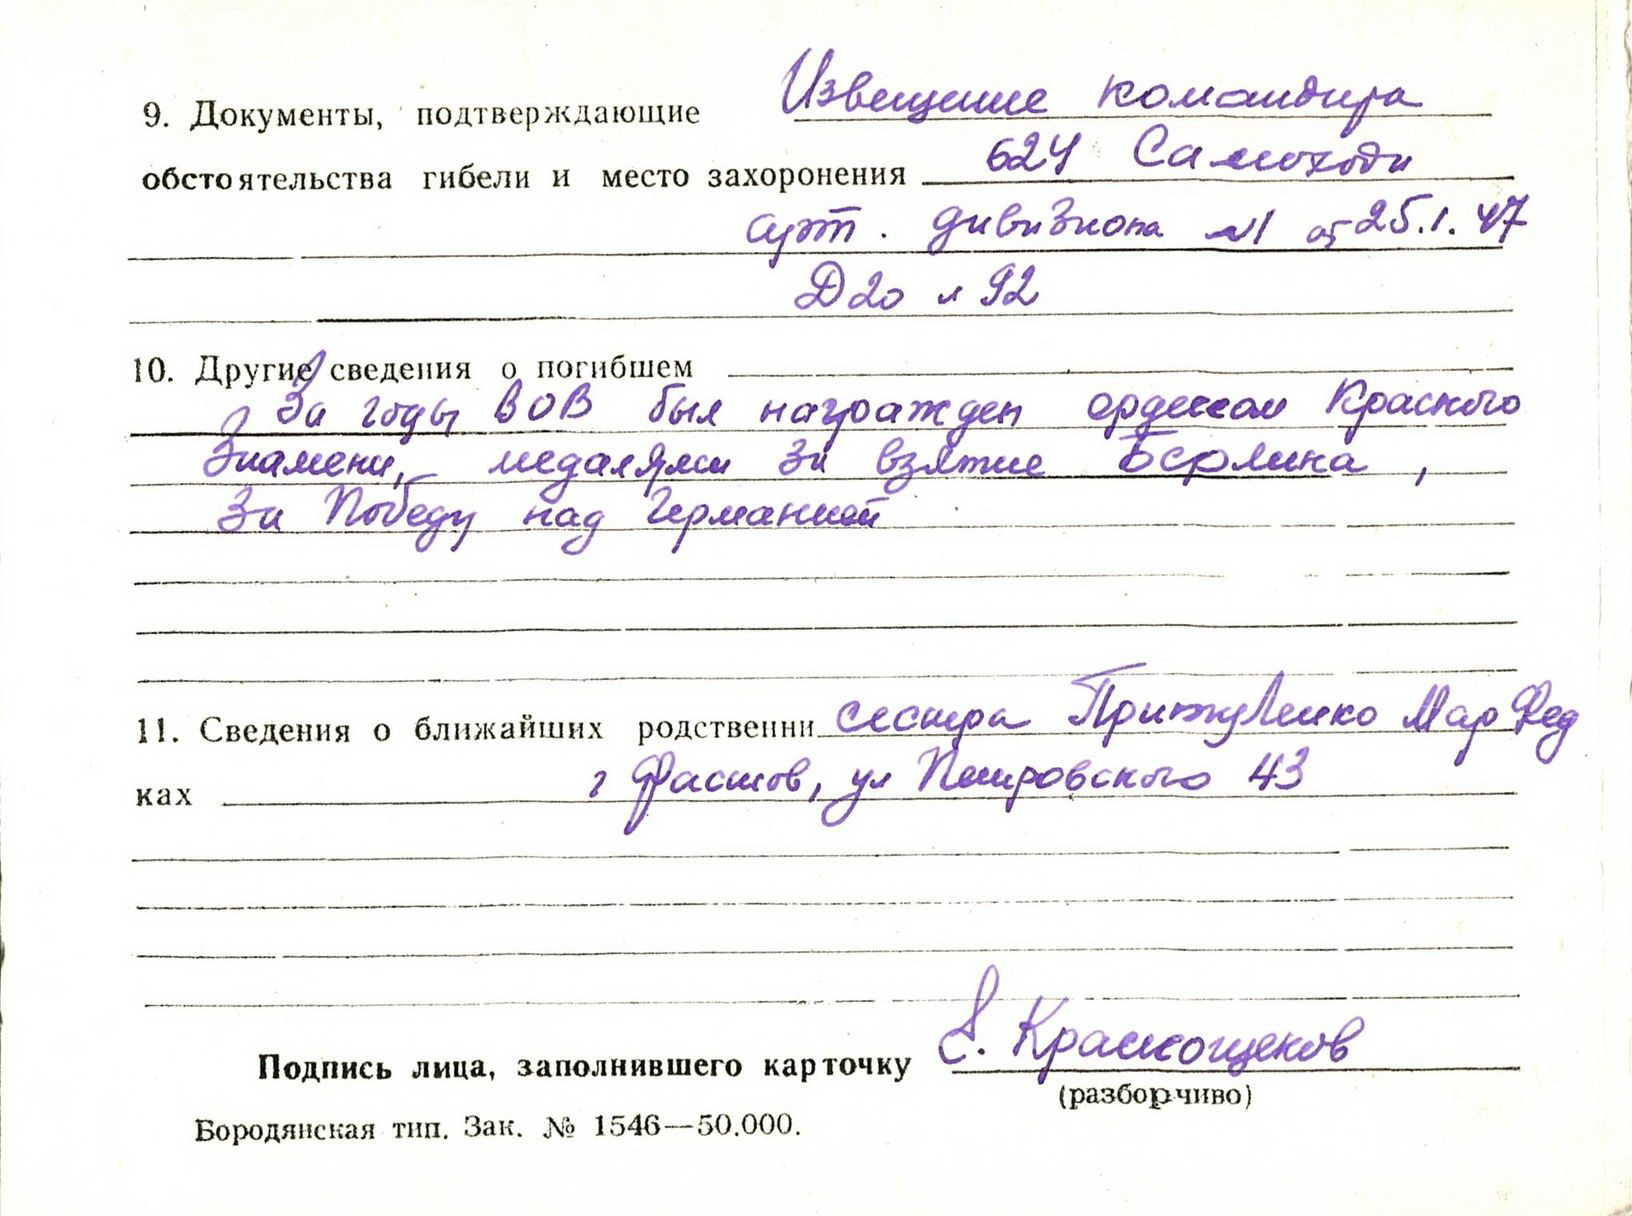 9. Документы, подтверждающие Извещение командира
обстоятельства гибели и место захоронения 624 Самоходн
арт. дивизиона №1 от 25.1.47
Д 20 л 92
10. Другие сведения о погибшем
За годы ВОВ был награжден орденом Красного
Знамени, медалями За взятие Берлина,
За Победу над Германией
11. Сведения о ближайших родственни сестра Мар Фед
ках г Фастов, ул Петровского 43
Подпись лица, заполнившего карточку Краснощеков
(разборчиво)
Бородянская тип. Зак. № 1546—50.000.